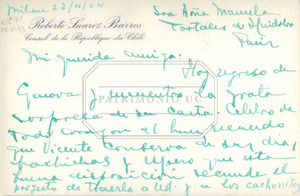 Milan 22/11/34
Sra Doña Manuela
Portales de Huidobro
Paris
Roberto Suarez Barros
Consul de la República de Chile
Mi querida amiga:
Hoy regreso de
Genova y encuentro la grata
sorpresa de su carta. Celebro de
todo corazon el buen recuerdo
que Vicente conserva de sus dias
y espero que esta
buena disposicion secunde el
proyecto de traerla a Ud. y a los cachorritos
PATRIMONIO UC